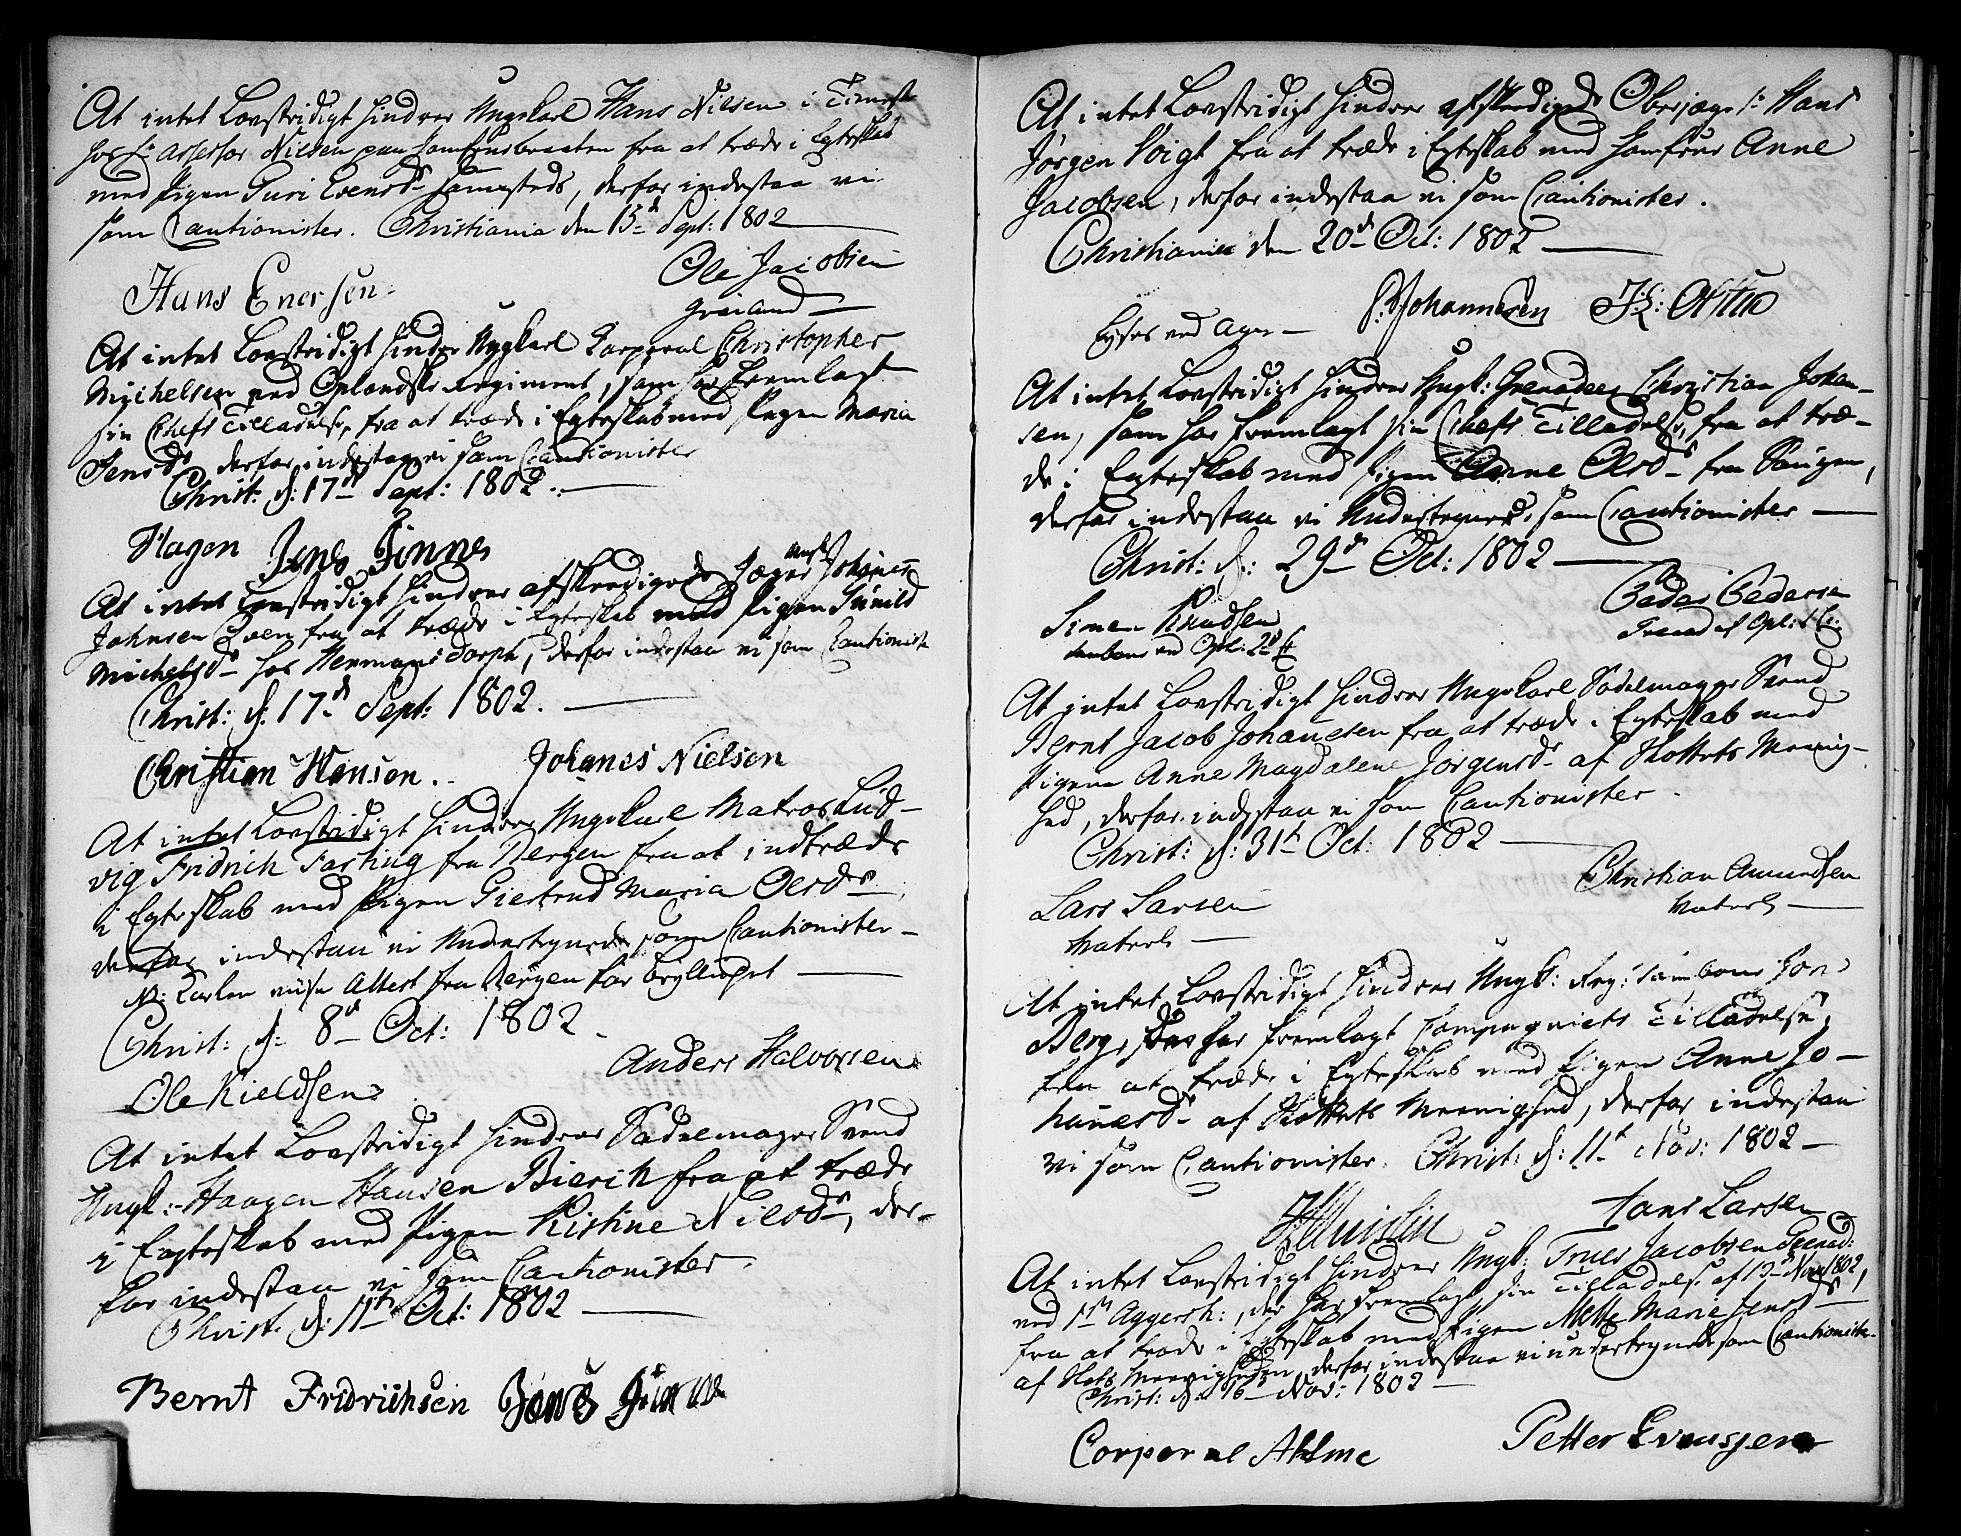 At intet Lovstridigt hindrer Ungkarl Hans Nilsen i Tieneste
hos Hr Assessor Nielsen paa fra at træde i Egteskab
med Pigen Guri Evensdr samesteds, derfor indestaa vi
som Cautionister. Christiania den 15d Sept: 1802
Hans Enersen
Ole Jacobsen
At intet Lovstridigt hindrer Ungkarl Corporal Christopher
Michelsen ved Oplandske Regiment, som har fremlagt
sin Chefs Tilladelse, fra at træde i Egteskab med Pigen Maria
Jensdr derfor indestaa vi som Cautionister
Christ: d: 17d Sept: 1802.
Hagen Jens Finnes
At intet Lovstridigt hindrer afskeedigede Jæger Ungk: Johanes
Johnsen fra at træde i Egteskab med Pigen Gunild
Michelsdr hos Hermansdorph, derfor indestaa vi som Cautionist
Christ: d: 17d Sept: 1802.
Christian Hansen. Johanes Nielsen
At intet Lovstridigt hindrer Ungekarl Matros Lud-
vig Fridrich Fasting fra Bergen fra at indtræde
i Egteskab med Pigen Giertrud Maria Olsdr
derfor indestaa vi Undertegnede som Cautionister-
NB: Karlen viise Attest fra Bergen for Bryllupet
Christ: d: 8d Oct: 1802
Ole Kieldsen
Anders Halvorsen
At intet Lovstridigt hindrer Sadelmager Svend
Ungk: Haagen Hansen Bierch fra at træde
i Egteskab med Pigen Kistine Nilsdr, der-
for indestaa vi som Cautionister.
Christ: d: 11te Oct: 1802
Bernt Fridrichsen
At intet Lovstridigt hindrer afskeedigede Oberjæger Hr Hans
Jørgen Voigt fra at træde i Egteskab med Jomfrue Anne
Jacobsen, derfor indestaa vi som Cautionister.
Christiania den 20d Oct: 1802
P: Johannesen
At intet Lovstridigt hindrer Ungk: Grenadeer Christian Johan-
sen, som har fremlagt sin Chefs Tilladelse, fra at træ-
de i Egteskab med Pigen Anne Olsdr fra Dangen,
derfor indestaa vi Undertegnede som Cautionister
Christ: d: 29d Oct: 1802
Simen Knudsen
Tambour ved Opl: 2d
Peder Pedersen
At intet Lovstridigt hindrer Ungekarl Sadelmager Svend
Bernt Jacob Johannesen fra at træde i Egteskab med
Pigen Anne Magdalene Jørgensdr af Slottets Menig-
hed, derfor indestaa vi som Cautionister.
Christ: d: 31te Oct: 1802
Lars Larsen
Christian Amundsen
At intet Lovstridigt hindrer Ungk: Reg: Tambour Jon
Berg, som har fremlagt Compagniets Tilladelse,
fra at træde i Egteskab med Pigen Anne Jo-
hanesdr af Slottets Meenighed, derfor indestaa
vi som Cautionister. Christ: d: 11te Nov: 1802
Hans Larsen
At intet Lovstridigt hindrer Ungk: Truels Jacobsen Grenad:
ved 1ste Aggersh:, der har fremlagt sin Tilladelse af 12d Nov: 1802,
fra at træde i Egteskab med Pigen Mette Marie Jensdr,
af Slots Meenigheden, derfor indestaa vi undertegnede som Cautionister.
Christ: d: 16de Nov: 1802
Corporal Ahlme
Petter Evensen